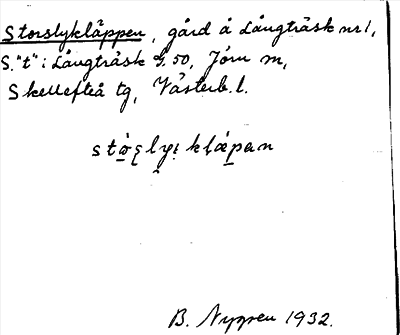 Storslykläppen, gård å Långträsk nr 1,
S. "t" i Långträsk g. 50, Jörn sn,
Skellefteå tg, Västerb. l.
B. Nygren 1932.